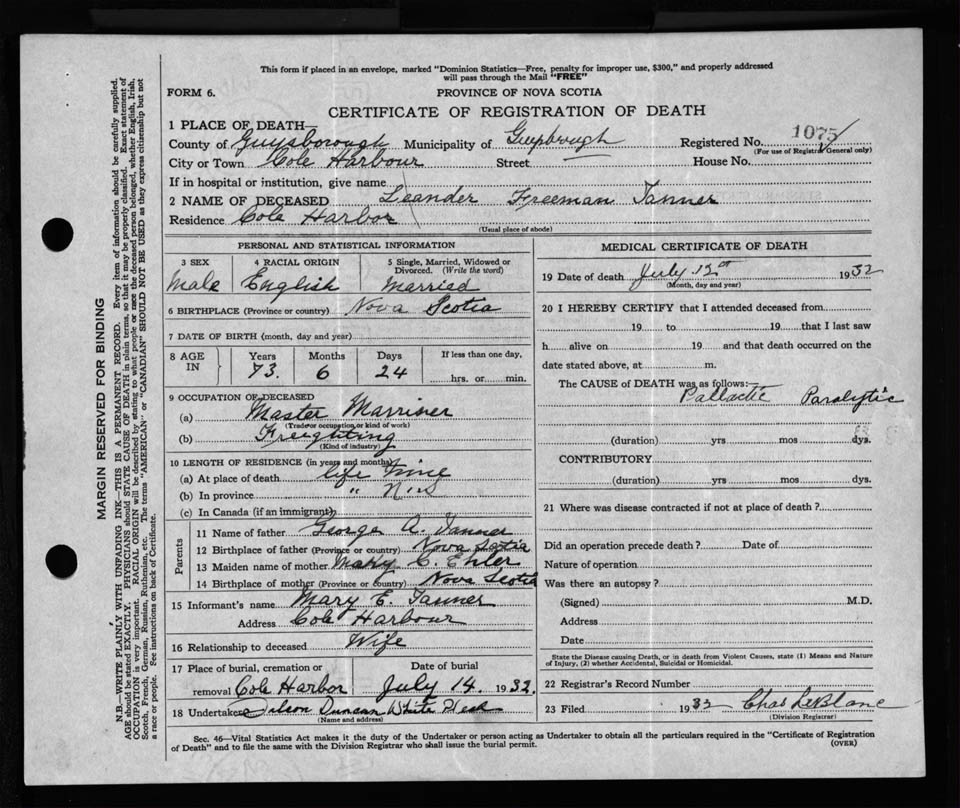 This form if placed in an envelope, marked "Dominion Statistics—Free, penalty for improper use, $300," and properly addressed
will pass through the Mail "FREE"
FORM 6.
PROVINCE OF NOVA SCOTIA
CERTIFICATE OF REGISTRATION OF DEATH
1 PLACE OF DEATH—
County of Guysborough Municipality of Registered No. 1075
(For use of Registrar General only)
City or Town Cole Harbour Street House No.
If in hospital or institution, give name
2 NAME OF DECEASED Leander Freeman Tanner
Residence Cole Harbor
(Usual place of abode)
PERSONAL AND STATISTICAL INFORMATION
3 SEX 4 RACIAL ORIGIN 5 Single, Married, Widowed or
Divorced. (Write the word)
Male English Married
6 BIRTHPLACE (Province or country) Nova Scotia
7 DATE OF BIRTH (month, day and year)
8 AGE IN Years Months Days If less than one day,
73. 6 24 hrs. or min.
9 OCCUPATION OF DECEASED
(a) Master Marriner
(Trade or occupation or kind of work)
(b) Freighting
(Kind of industry)
10 LENGTH OF RESIDENCE (in years and months)
(a) At place of death life Time
(b) In province " N.S
(c) In Canada (if an immigrant)
Parents
11 Name of father George A. Tanner
12 Birthplace of father (Province or country) Nova Scotia
13 Maiden name of mother Mary C. Ehler
14 Birthplace of mother (Province or country) Nova Scotia
15 Informant's name Mary E. Tanner
Address Cole Harbour
16 Relationship to deceased Wife
17 Place of burial, cremation or Date of burial
removal Cole Harbor July 14. 1932.
18 Undertaker Duncan White Head
(Name and address)
MEDICAL CERTIFICATE OF DEATH
19 Date of death July 12th 1932
(Month, day and year)
20 I HEREBY CERTIFY that I attended deceased from
19 to 19 that I last saw
h alive on 19 and that death occurred on the
date stated above, at m.
The CAUSE OF DEATH was as follows:—
Paralytic
(duration) yrs mos dys.
CONTRIBUTORY
(duration) yrs mos dys.
21 Where was disease contracted if not at place of death?
Did an operation precede death? Date of
Nature of operation
Was there an autopsy?
(Signed) M.D.
Address
Date
State the Disease causing Death, or in death from Violent Causes, state (1) Means and Nature
of Injury, (2) whether Accidental, Suicidal or Homicidal.
22 Registrar's Record Number
23 Filed 1932 Chas LeBlanc
(Division Registrar)
Sec. 46—Vital Statistics Act makes it the duty of the Undertaker or person acting as Undertaker to obtain all the particulars required in the "Certificate of Registration
of Death" and to file the same with the Division Registrar who shall issue the burial permit.
(OVER)
MARGIN RESERVED FOR BINDING
N.B.—WRITE PLAINLY WITH UNFADING INK—THIS IS A PERMANENT RECORD. Every item of information should be carefully supplied.
AGE should be stated EXACTLY. PHYSICIANS should STATE CAUSE OF DEATH in plain terms, so that it may be properly classified. Exact statement of
OCCUPATION is very important. RACIAL ORIGIN will be described by stating to what people or race the deceased person belonged, whether English, Irish,
Scotch, French, German, Russian, Ruthenian, etc. The terms "AMERICAN" or "CANADIAN" SHOULD NOT BE USED as they express citizenship but not
a race or people. See instructions on back of Certificate.